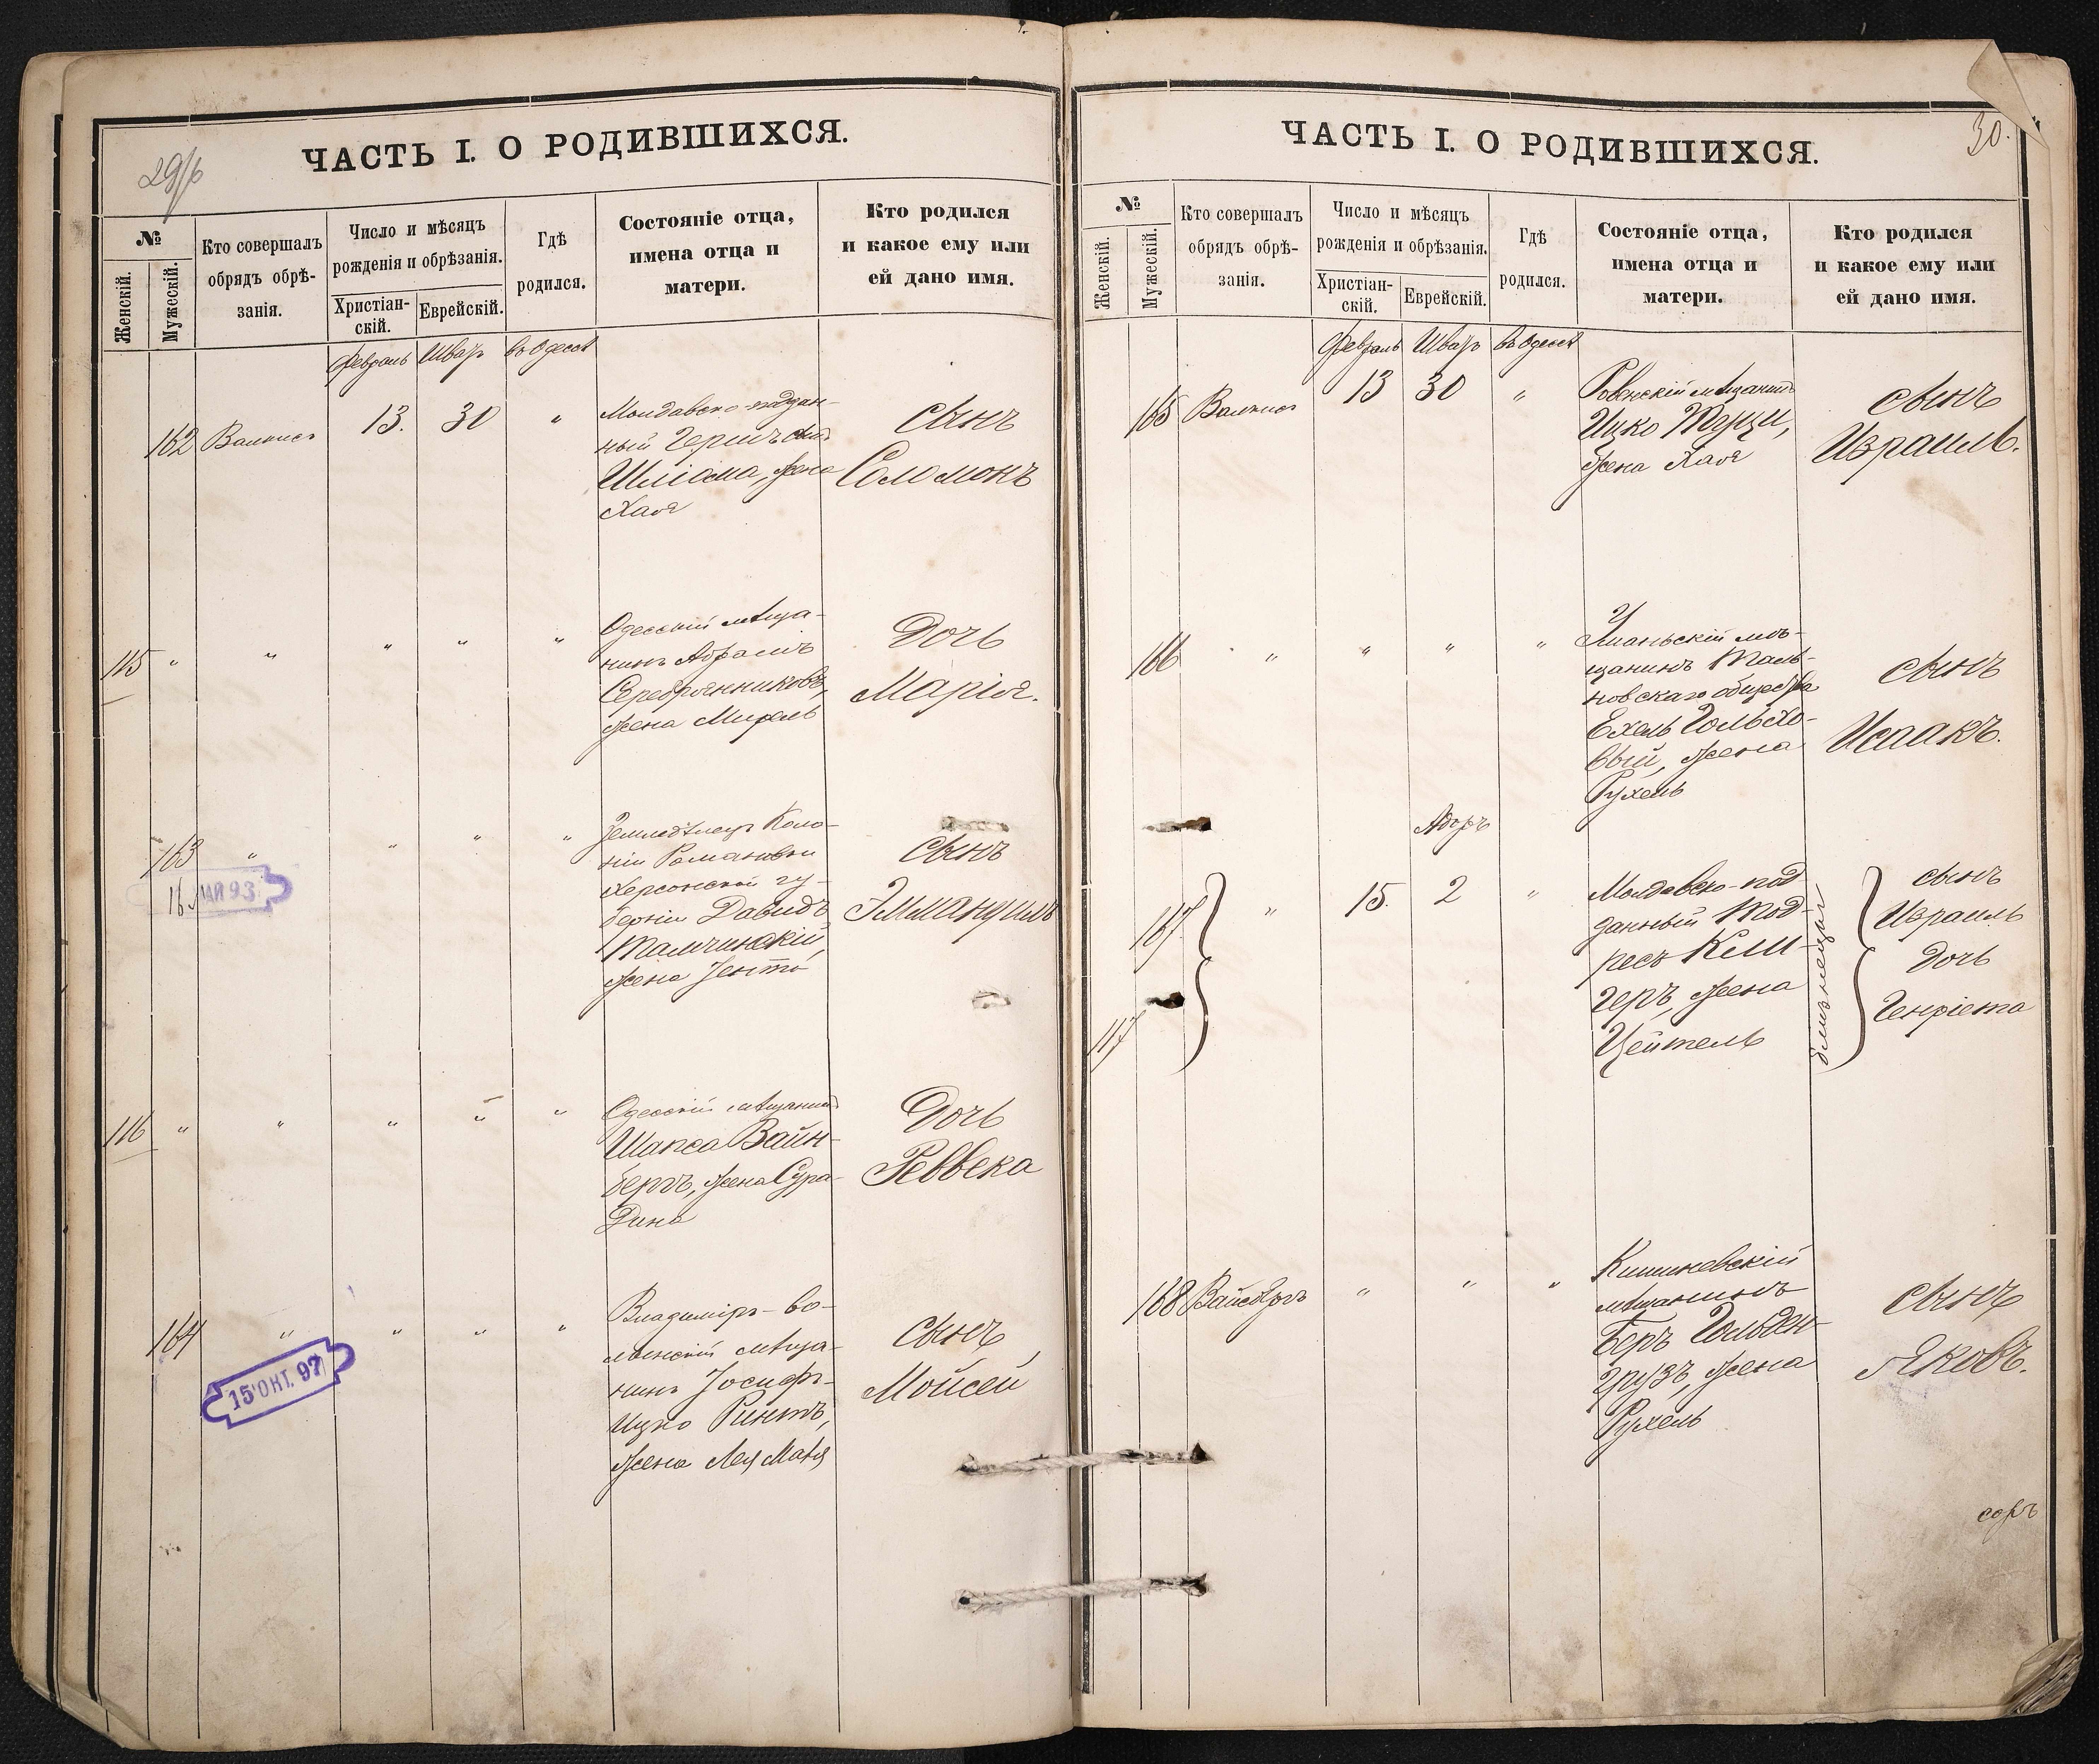 29/б
ЧАСТЬ I. О РОДИВШИХСЯ.
№
Женскій.
Мужескій.
Кто совершалъ
обрядъ обрѣ-
занія.
Число и мѣсяцъ
рожденія и обрѣзанія.
Христіан-
скій.
Еврейскій.
Гдѣ
родился.
Состояніе отца,
имена отца и
матери.
Кто родился
и какое ему или
ей дано имя.
Февраль Шватъ въ Одессѣ
162 13. 30 "
Молдавско-поддан-
ный Гершъ
жена
Хая
Сынъ
Соломонъ
115 " " " " "
Одесскій мѣща-
нинъ Абрамъ
Серебрянниковъ,
жена Мирель
Дочь
Марія.
163 " " " "
16 МАЙ 93
Земледѣлецъ Коло-
ніи Романовки
Херсонской гу-
берніи Давидъ
Талчинскій,
жена Зента
Сынъ
Эммануилъ
116 " " " " "
Одесскій мѣщанинъ
Шапса Вайн-
бергъ, жена Сура-
Дина
Дочь
Реввека
164 " " " "
15 ОКТ. 97
Владиміръ-во-
лынскій мѣща-
нинъ Іосифъ-
Ицко Ринтъ,
жена Лея Маня
Сынъ
Мойсей
30.
ЧАСТЬ I. О РОДИВШИХСЯ.
№
Женскій.
Мужескій.
Кто совершалъ
обрядъ обрѣ-
занія.
Число и мѣсяцъ
рожденія и обрѣзанія.
Христіан-
скій.
Еврейскій.
Гдѣ
родился.
Состояніе отца,
имена отца и
матери.
Кто родился
и какое ему или
ей дано имя.
Февраль Шватъ въ Одессѣ
165 13 30 "
Ровенскій мѣщанинъ
Ицко
жена Хая
сынъ
Израиль.
166 " " " "
Уманьскій мѣ-
щанинъ Таль-
новскаго общества
Ехель Гольхо-
вый, жена
Рухель
сынъ
Исаакъ.
Адаръ
167 " 15. 2 "
117
Молдавско-под
данный
геръ, жена
Цейтель
близнецы
сынъ
Израиль
Дочь
Генріета
168 Вайсбергъ " " "
Кишиневскій
мѣщанинъ
Беръ Гольден-
грузъ, жена
Рухель
сынъ
Яковъ.